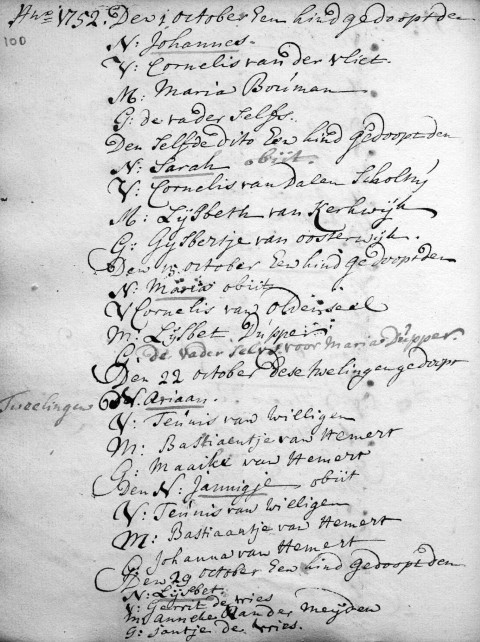 Anno 1752. Den 1 october Een kind gedoopt den
100
N: Johannes.
V: Cornelis van der vliet.
M: Maria Bouman
G: de vader Selfs.
Den Selfde dito Een kind gedoopt den
N: Sarah obiit.
V: Cornelis van Dalen Scholtŷ
M: Lijsbeth van Kerkwijk
G: Gijsbertje van oosterwijk.
Den 15 october Een kind gedoopt den
N: Maria obiit
V Cornelis van Oldenseel
M: Lijsbet Dupper
G: de vader Selvs voor Maria Dupper.
Den 22 october dese twelingen gedoopt
Tweelingen
N: Ariaan.
V: Teunis van willigen
M: Bastiaentje van Hemert
G: Maaike van Hemert
Den N: Jannigje obiit
V: Teunis van willigen
M: Bastiaantje van Hemert
G Johanna van Hemert
Den 29 october Een kind gedoopt den
N: Lijsbet.
V: Gerrit de vries
M: Anneke van der Meijden
G: Jantje de vries.